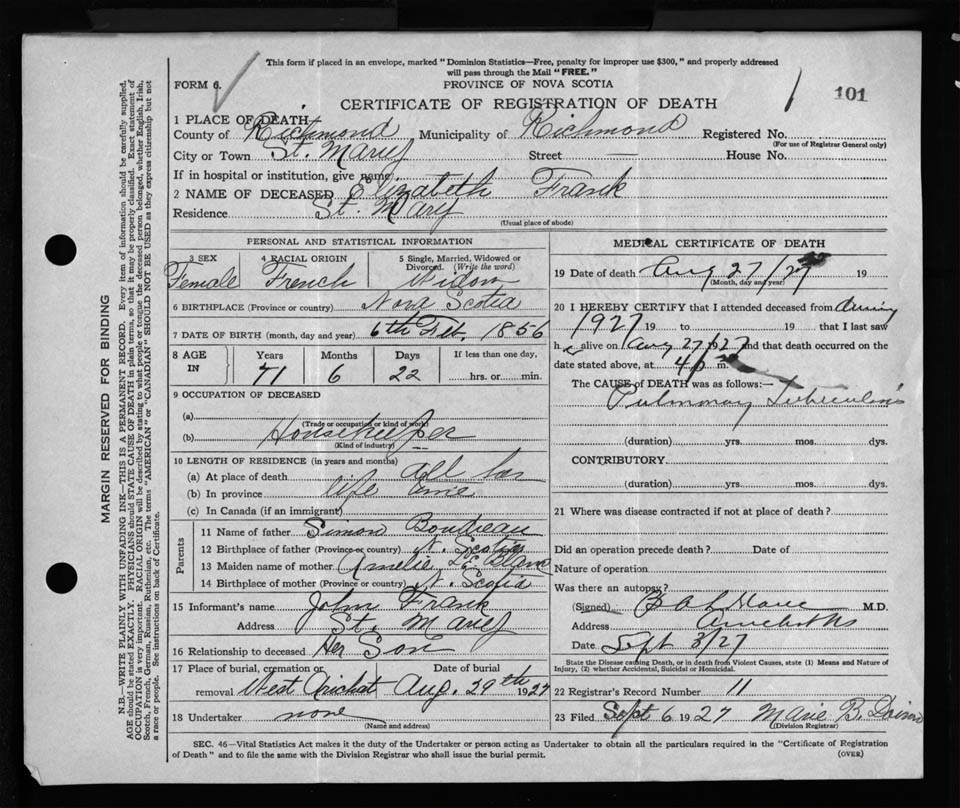 This form if placed in an envelope, marked "Dominion Statistics—Free, penalty for improper use $300," and properly addressed
will pass through the Mail "FREE."
FORM 6.
PROVINCE OF NOVA SCOTIA
CERTIFICATE OF REGISTRATION OF DEATH
1 101
1 PLACE OF DEATH
County of Richmond Municipality of Richmond Registered No.
(For use of Registrar General only)
City or Town St. Marys Street — House No.
If in hospital or institution, give name
2 NAME OF DECEASED Elizabeth Frank
Residence St. Marys
(Usual place of abode)
PERSONAL AND STATISTICAL INFORMATION
3 SEX 4 RACIAL ORIGIN 5 Single, Married, Widowed or Divorced. (Write the word)
Female French Widow
6 BIRTHPLACE (Province or country) Nova Scotia
7 DATE OF BIRTH (month, day and year) 6th Feb. 1856
8 AGE IN Years Months Days If less than one day,
71 6 22 hrs. or min.
9 OCCUPATION OF DECEASED
(a)
(Trade or occupation or kind of work)
(b) Housekeeper
(Kind of industry)
10 LENGTH OF RESIDENCE (in years and months)
(a) At place of death all her
(b) In province life time
(c) In Canada (if an immigrant)
Parents
11 Name of father Simon Boudreau
12 Birthplace of father (Province or country) N. Scotia
13 Maiden name of mother Amelie LeBlanc
14 Birthplace of mother (Province or country) N. Scotia
15 Informant's name John Frank
Address St. Marys
16 Relationship to deceased Her Son
17 Place of burial, cremation or removal West Arichat Date of burial Aug. 29th 1927
18 Undertaker none
(Name and address)
MEDICAL CERTIFICATE OF DEATH
19 Date of death Aug 27/27 19
(Month, day and year)
20 I HEREBY CERTIFY that I attended deceased from during
1927 19 to 19 that I last saw
h alive on Aug 27 1927 and that death occurred on the
date stated above, at 4 p m.
The CAUSE of DEATH was as follows:—
Pulmonary Tuberculosis
(duration) yrs. mos. dys.
CONTRIBUTORY
(duration) yrs. mos. dys.
21 Where was disease contracted if not at place of death?
Did an operation precede death? Date of
Nature of operation
Was there an autopsy?
(Signed) M.D.
Address
Date Sept 3/27
State the Disease causing Death, or in death from Violent Causes, state (1) Means and Nature of
Injury, (2) whether Accidental, Suicidal or Homicidal.
22 Registrar's Record Number 11
23 Filed Sept 6 1927 Marie B.
(Division Registrar)
SEC. 46—Vital Statistics Act makes it the duty of the Undertaker or person acting as Undertaker to obtain all the particulars required in the "Certificate of Registration
of Death" and to file the same with the Division Registrar who shall issue the burial permit.
(OVER)
MARGIN RESERVED FOR BINDING
N.B.—WRITE PLAINLY WITH UNFADING INK—THIS IS A PERMANENT RECORD. Every item of information should be carefully supplied.
AGE should be stated EXACTLY. PHYSICIANS should STATE CAUSE OF DEATH in plain terms, so that it may be properly classified. Exact statement of
OCCUPATION is very important. RACIAL ORIGIN will be described by stating to what people or tongue the deceased person belonged, whether English, Irish,
Scotch, French, German, Russian, Ruthenian, etc. The terms "AMERICAN" or "CANADIAN" SHOULD NOT BE USED as they express citizenship but not
a race or people. See instructions on back of Certificate.